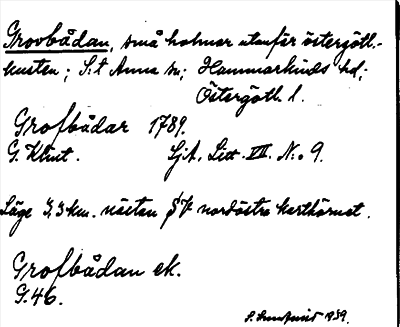 Grovbådan, små holmar utanför östergötl.-
kusten; S:t Anna sn; Hammarkinds hd;
Östergötl. l.
Grofbådar 1789.
G. Klint. Sjk. Litt. VII. N:o 9.
Läge 3,3 km. nästan i nordöstra karthörnet.
Grofbådan ek.
G.46.
S. 1939.